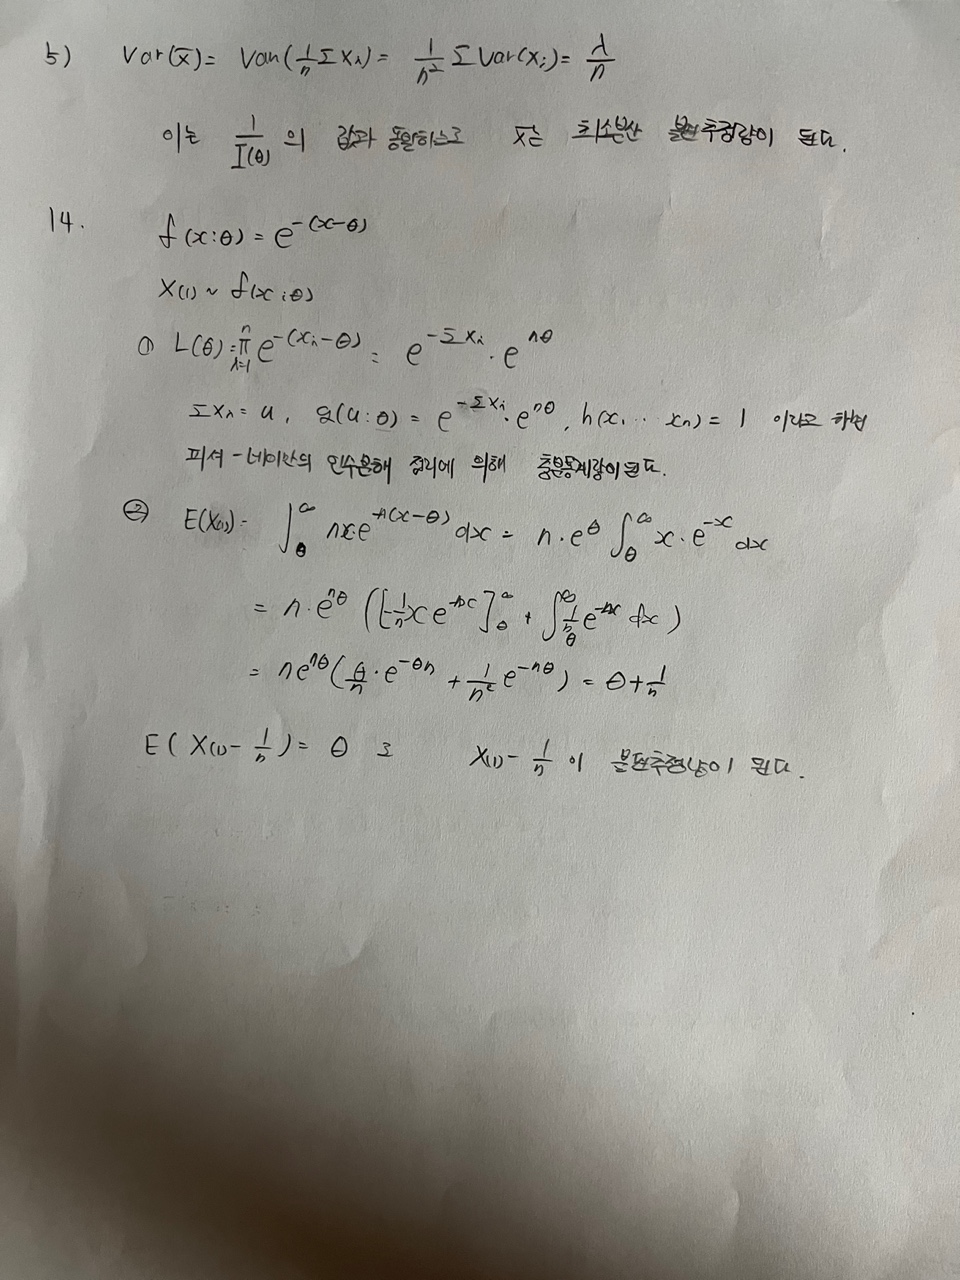 5) Var(x̄) = Var(1/n Σxi) = 1/n² Σ Var(xi) = λ/n
이는 1/I(θ) 의 값과 동일하므로 x̄는 최소분산 불편추정량이 된다.
14. f(x:θ) = e^-(x-θ)
X(1) ~ f(x;θ)
① L(θ) = π_{i=1}^{n} e^-(xi-θ) = e^-Σxi · e^nθ
Σxi = u, g(u:θ) = e^-Σxi · e^nθ, h(x1 ··· xn) = 1 이라고 하면
피셔-네이만의 인수분해 정리에 의해 충분통계량이 된다.
② E(X(1)) = ∫_θ^∞ nx·e^-n(x-θ) dx = n·e^θ ∫_θ^∞ x·e^-x dx
= n·e^nθ ([-1/n xe^-nx]_θ^∞ + ∫_θ^∞ 1/n e^-nx dx)
= ne^nθ (θ/n · e^-θn + 1/n² e^-nθ) = θ + 1/n
E(X(1) - 1/n) = θ 로 X(1) - 1/n 이 불편추정량이 된다.